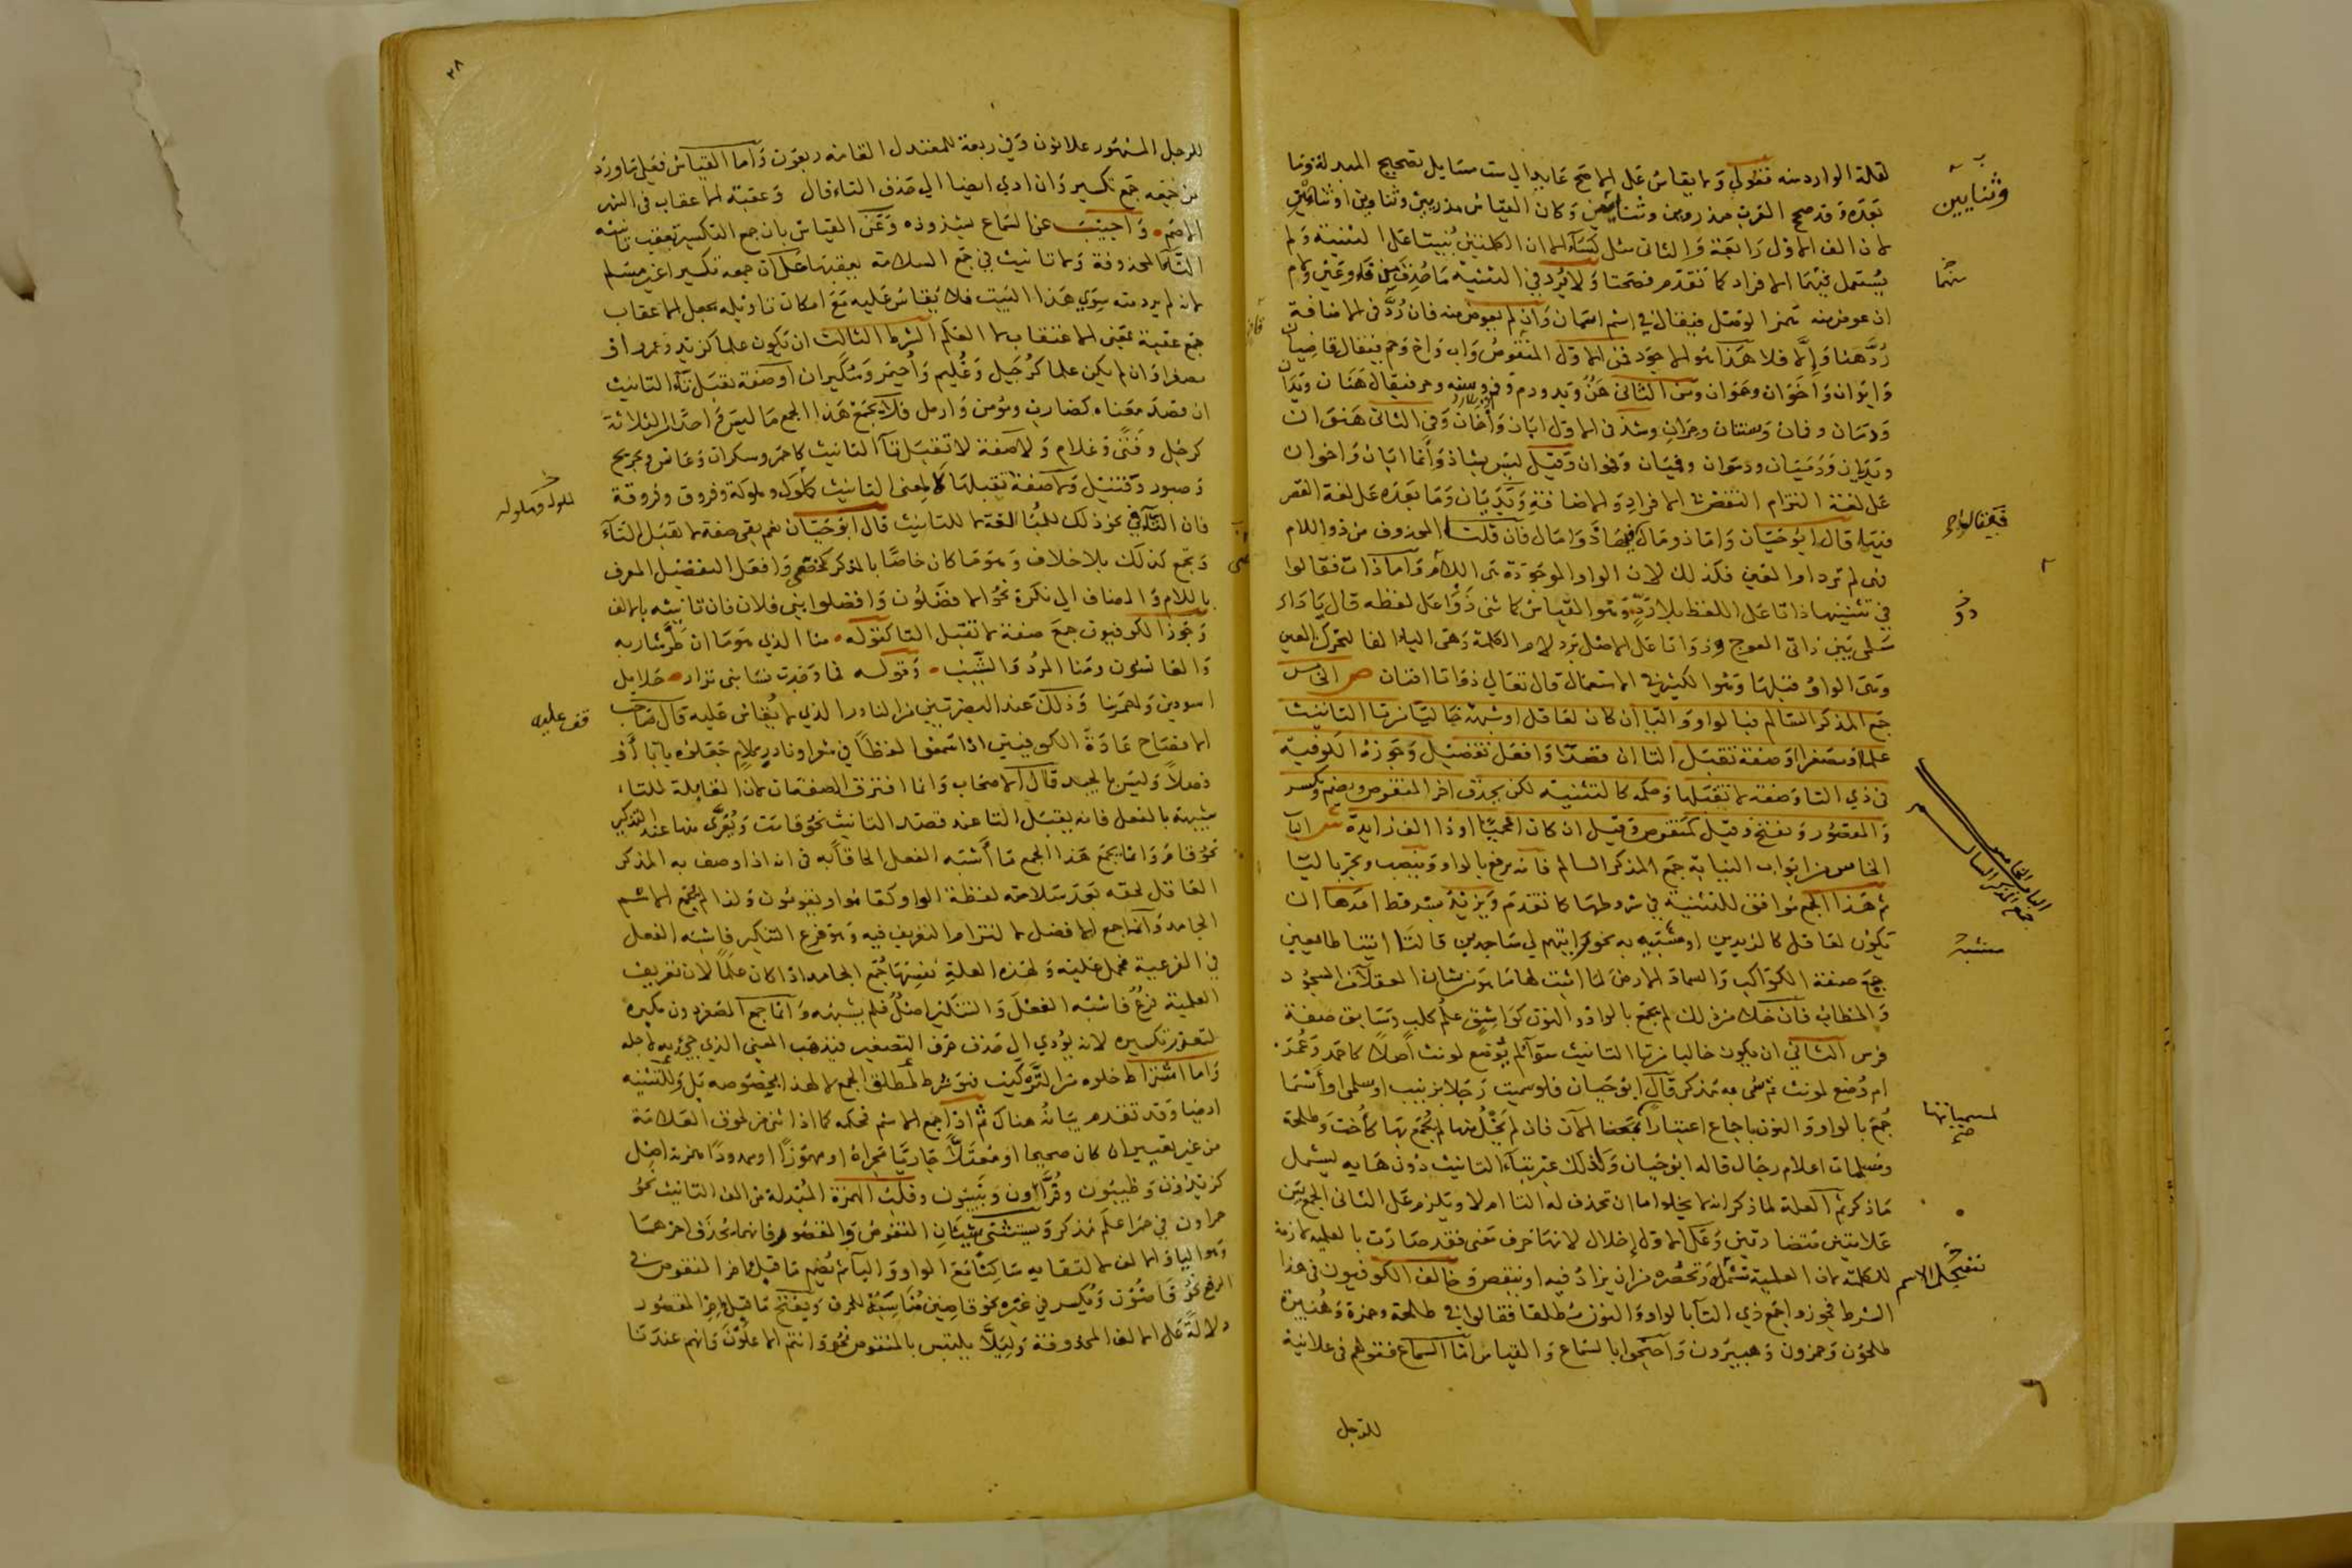 لقلة الوارد منه فقولي ولا يقاس على الاصح عايد الي ست مسايل تصحيح المبدلة وما
بعده وقد صحح العرب مذروين وثنايين وكان القياس مذريين وثناوين او ثنائين
لان الف الاول رابعة والثاني مثل كساء الا ان الكلمتين بنيتا على التثنية ولم
يستعمل فيهما الافراد كما تقدم فصحتا ولا يرد في التثنية ما حذف من فاء وعين ولام
ان عوض منه همز الوصل فيقال في اسم اسمان وان لم يعوض منه فان رد في الاضافة
رد هنا والا فلا هذا هو الاجود فمن الاول المنقوص واب واخ وحم فيقال قاضيان
وابوان واخوان وحموان ومن الثاني هن ويد ودم وفم وسنه وحر فيقال هنان ويدان
ودمان وفمان وسنتان وحران وشذ في الاول ابان واخان وفي الثاني هنوان
ويديان ودميان ودموان وفميان وفموان وقيل ليس بشاذ وانما ابان واخوان
على لغة التزام النقص في الافراد والاضافة ويديان وما بعده على لغة القصر
فيه قال ابو حيان واما ذو مال فيقال ذوا مال فان قلت المحذوف من ذو اللام
فلم لم تردوا لقيل فكذلك لان الواو الموجودة هي اللام واما ذات فقالوا
في تثنيتها ذاتا على اللفظ بلا رد وهو القياس كما ثني ذو على لفظه قال يا دار
سلمى بين ذاتي العوج وذواتا على الاصل برد لام الكلمة وهي الياء الفا لتحرك العين
وهي الواو قبلها وهو الكثير في الاستعمال قال تعالى ذواتا افنان ص الخامس
جمع المذكر السالم فبالواو والياء ان كان لعاقل او شبهه خاليا من تا التانيث
علما او مصغرا او صفة تقبل التا ان قصد او افعل تفضيل وجوزه الكوفية
في ذي التا وصفة لا تقبلها وحكمه كالتثنية لكن يحذف اخر المنقوص ويضم ويكسر
والمقصور ويفتح وقيل كمنقوص وقيل ان كان اعجميا او ذا الف زايدة ش الباب
الخامس من ابواب النيابة جمع المذكر السالم فانه يرفع بالواو وينصب ويجر بالياء
ثم هذا الجمع موافق للتثنية في شروطها كما تقدم ويزيد بشروط احدها ان
يكون لعاقل كالزيدين او مشبه به نحو رايتهم لي ساجدين قالتا اتينا طائعين
جمع صفة الكواكب والسماء والارض لما اثبت لها ما هو من شان العقلاء من السجود
والخطاب فان خلا من ذلك لم يجمع بالواو والنون كواشق علم كلب وسابق صفة
فرس الثاني ان يكون خاليا من تا التانيث سواء لم يوضع لمونث اصلا كاحمد وعمر
ام وضع لمونث ثم سمي به مذكر قال ابو حيان فلو سميت رجلا بزينب او سلمى او اسما
جمع بالواو والنون باجماع اعتبارا بمعناه الآن فان لم يخل منها لم يجمع بها كاخت وطلحة
ومسلمات اعلام رجال قاله ابو حيان ولذلك عبر بتاء التانيث دون هايه ليشمل
ما ذكر ثم العلة لما ذكر انه لا يخلو اما ان تحذف له التا ام لا ويلزم على الثاني الجمع بين
علامتين متضادتين وعلى الاول اخلال لانها حرف معنى فقد صارت بالعلمية لازمة
للكلمة لان العلمية تشمل وتحصره من ان يزاد فيه او ينقص وخالف الكوفيون في هذا
الشرط فجوزوا جمع ذي التا بالواو والنون مطلقا فقالوا في طلحة وحمزة وهبيرة
طلحون وحمزون وهبيرون واحتجوا بالسماع والقياس اما السماع فقولهم في علانية
للرجل
وثنايين
منهما
فيقال
ذو
الباب الخامس
جمع المذكر السالم
مشبه
لمسمياتها
صح
للرجل المشهور علانون وفي ربعة للمعتدل القامه ربعون واما القياس فعلى ما ورد
من جمعه جمع تكسير وان ادي ايضا الي حذف التاء قال وعقبة الاعقاب في الشهر
الاصم • واجيب عن السماع بشذوذه وعن القياس بان جمع التكسير يعقب تانيثه
التاء المحذوفة ولا تانيث في جمع السلامة يعقبها على ان جمعه تكسيرا غير مسلم
لانه لم يرد منه سوى هذا البيت فلا يقاس عليه مع امكان تاويله بجعل الاعقاب
جمع عقبة بمعنى الاعتقاب لا العلم الشرط الثالث ان يكون علما كزيد وعمرو او
مصغرا وان لم يكن علما كرجيل وغليم واحيمر وسكيران او صفة تقبل تاء التانيث
ان قصد معناه كضارب ومومن وارمل فلا يجمع هذا الجمع ما ليس احد الثلاثة
كرجل وفتى وغلام ولا صفة لا تقبل تاء التانيث كاحمر وسكران وعانس وجريح
وصبور وقتيل ولا صفة تقبلها لا لمعنى التانيث كملول وملولة وفروق وفروقة
فان التاء في نحو ذلك للمبالغة لا للتانيث قال ابو حيان نعم بقي صفة لا تقبل التاء
وتجمع كذلك بلا خلاف وهو ما كان خاصا بالمذكر كخصي وافعل التفضيل المعرف
باللام والمضاف الي نكرة نحو الافضلون وافضلوا بني فلان فان تانيثه بالالف
وجوز الكوفيون جمع صفة لا تقبل التا كقوله • منا الذي هو ما ان طر شاربه
والعانسون ومنا المرد والشيب • وقوله فما وجدت نساء بني نزار • حلايل
اسودين واحمرينا وذلك عند البصريين من النادر الذي لا يقاس عليه قال صاحب
الافصاح عادة الكوفيين اذا سمعوا لفظا في شعر او نادر كلام جعلوه بابا او
فصلا وليس بالجيد قال الاصحاب وانما افترق الصفتان لان القابلة للتاء
شبيهة بالفعل فانه يقبل التا عند قصد التانيث نحو قامت ويعرى منها عند التذكير
نحو قام وانما يجمع هذا الجمع ما اشبه الفعل الحاقا به في انه اذا وصف به المذكر
العاقل لحقه بعد سلامته لفظة الواو كقاموا ويقومون ولذا لم يجمع الاسم
الجامد وانما جمع الافضل لالتزام التعريف فيه وهو فرع التنكير فاشبه الفعل
في الفرعية فحمل عليه ولهذه العلة نفسها جمع الجامد اذا كان علما لان تعريف
العلمية فرع فاشبه الفعل والتنكير اصل فلم يشبهه وانما جمع المصغر دون مكبره
لتعذر تكسيره لانه يؤدي الى حذف حرف التصغير فيذهب المعنى الذي جيء به لاجله
واما اشتراط خلوه من التركيب فهو شرط لمطلق الجمع لا لهذا بخصوصه بل وللتثنية
ايضا وقد تقدم بيانه هناك ثم اذا جمع الاسم فحكمه كما اذا ثني من لحوق العلامة
من غير تغيير ان كان صحيحا او معتلا جاريا مجراه او مهموزا او ممدودا همزته اصل
كزيدون وظبيون وقراؤن ونبيون وقلب الهمزة المبدلة من الف التانيث نحو
حمراون في حمرا علم مذكر ويستثنى شيئان المنقوص والمقصور فانهما يحذف اخرهما
وهو اليا والالف لالتقايه ساكنا مع الواو والياء ثم يضم ما قبل اخر المنقوص في
الرفع نحو قاضون ويكسر في غيره نحو قاضين مناسبة للحرف ويفتح ما قبل اخر المقصور
دلالة على الالف المحذوفة وليلا يلتبس بالمنقوص نحو وانتم الاعلون وانهم عندنا
ملول وملوله
قف عليه
٢٨